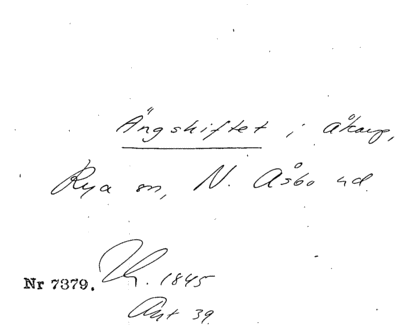 Ängshiftet i Åkarp,
Rya sn, N. Åsbo hd.
Nr 7379. Th. 1845
Ant 39.